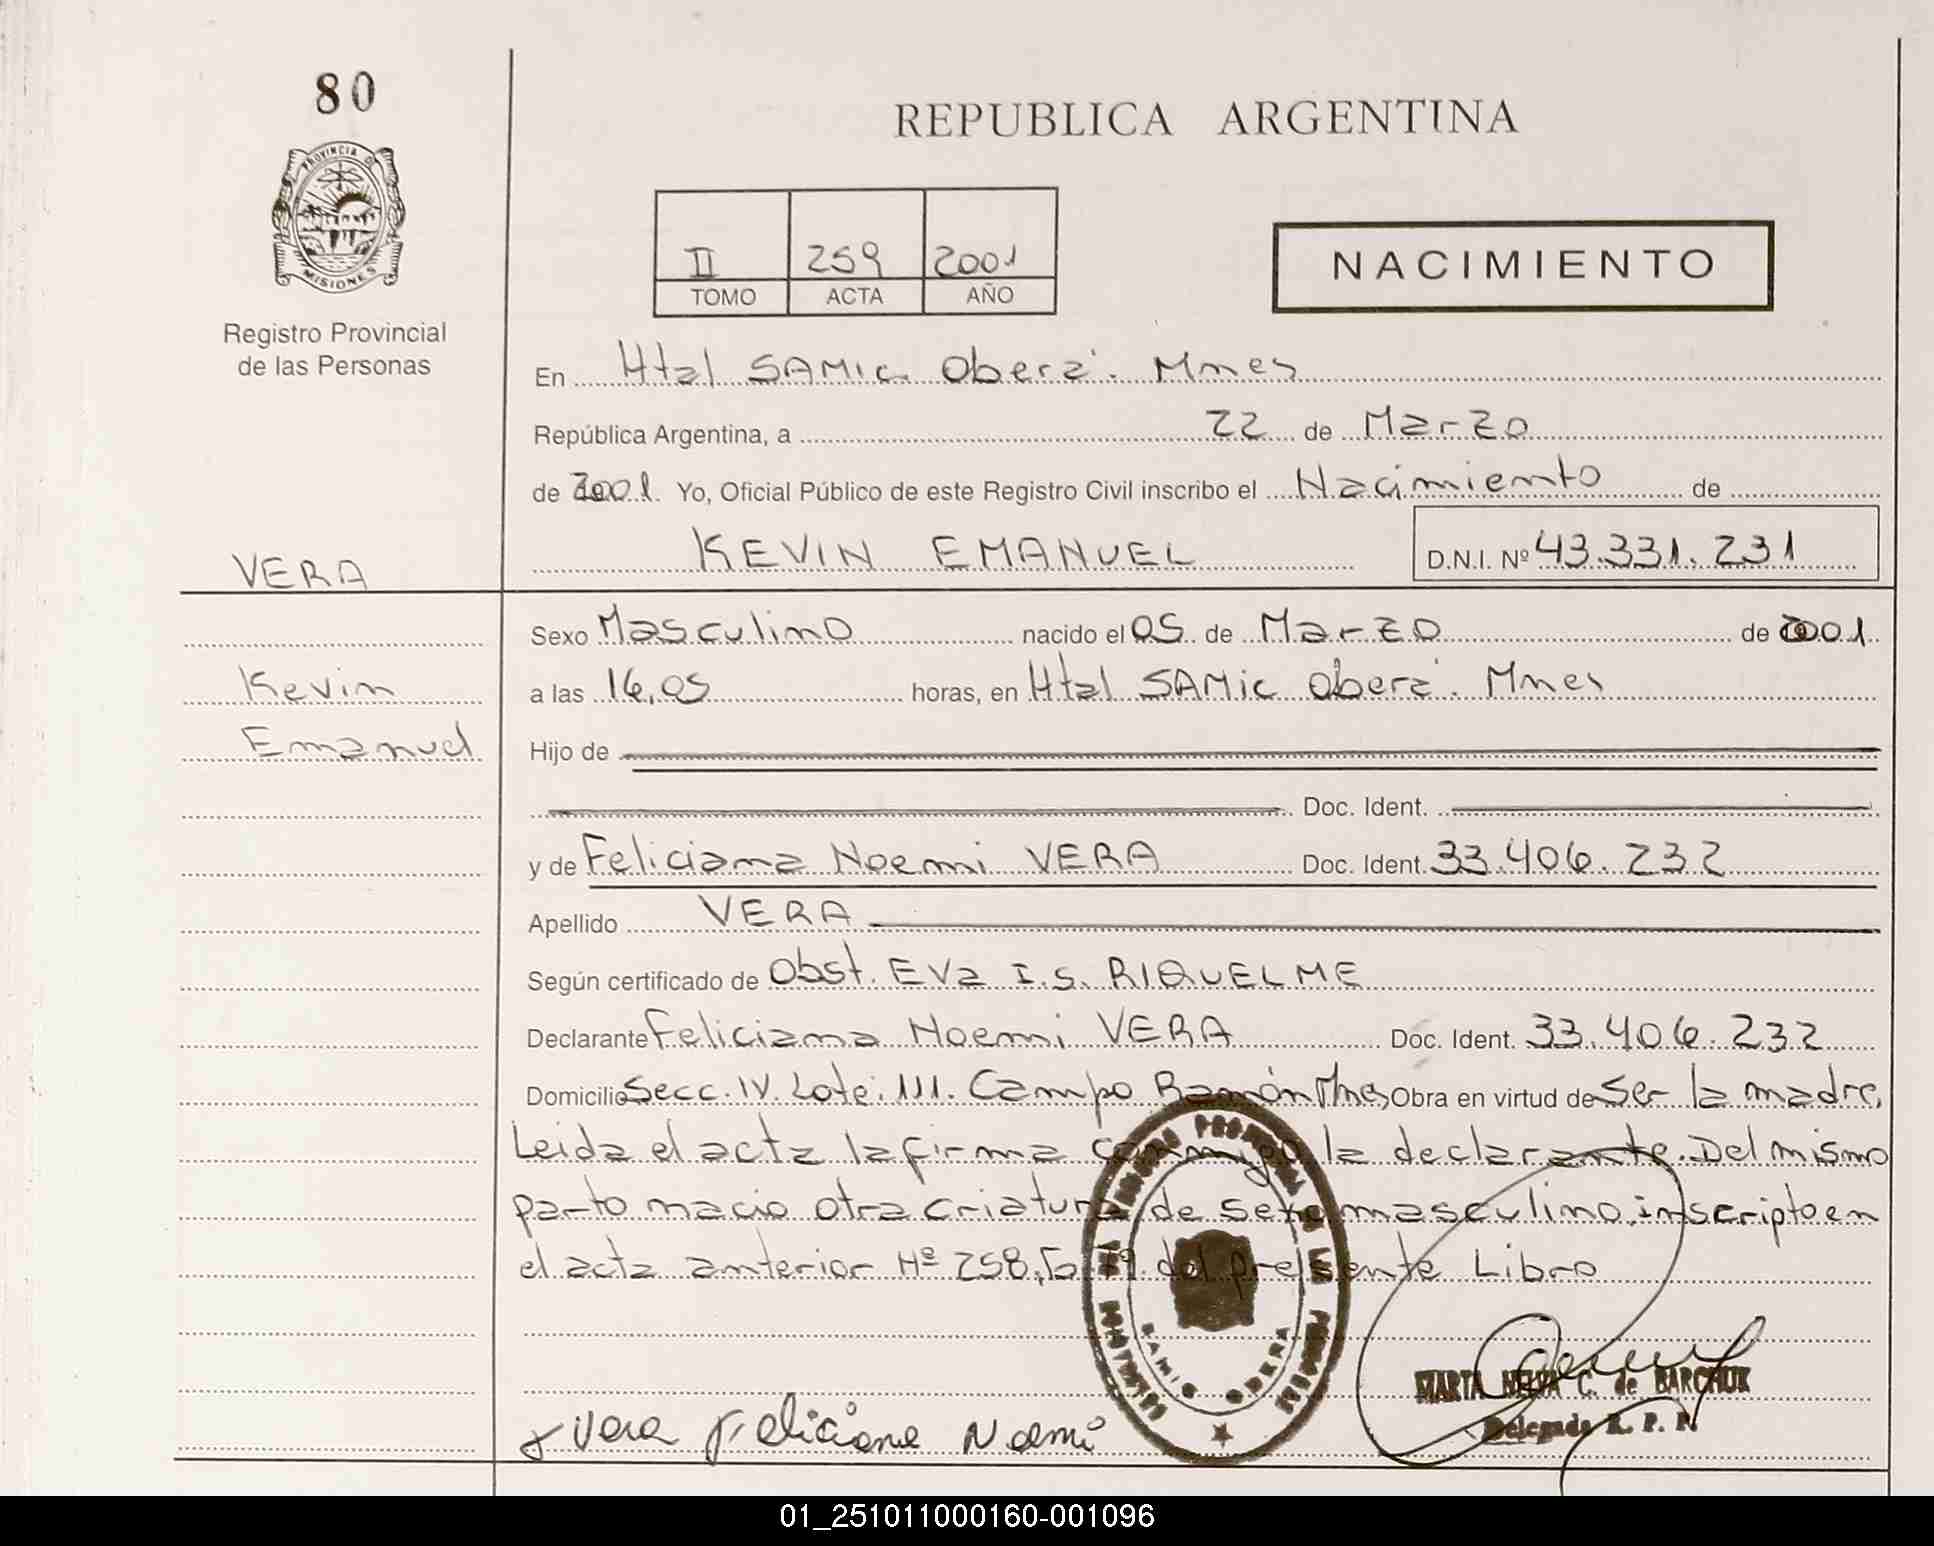 80
REPUBLICA ARGENTINA
PROVINCIA DE
MISIONES
II 259 2001
TOMO ACTA AÑO
NACIMIENTO
Registro Provincial
de las Personas
En Htal SAMIC. Oberá. Mnes
República Argentina, a 22 de Marzo
de 2001. Yo, Oficial Público de este Registro Civil inscribo el Nacimiento de
VERA
KEVIN EMANUEL D.N.I. Nº 43.331.231
Sexo Masculino nacido el 05 de Marzo de 2001
Kevin
a las 16,05 horas, en Htal SAMIC Oberá. Mnes
Emanuel
Hijo de
Doc. Ident.
y de Feliciana Noemi VERA Doc. Ident. 33.406.232
Apellido VERA
Según certificado de Obst. Eva I.S. RIQUELME
Declarante Feliciana Noemi VERA Doc. Ident. 33.406.232
Domicilio Secc. IV. Lote: 111. Campo Ramón Mnes, Obra en virtud de Ser la madre,
Leida el acta la firma conmigo la declarante. Del mismo
parto nacio otra criatura de sexo masculino, inscripto en
el acta anterior Nº 258, Fo 79. del presente Libro
SAMIC OBERA
MARTA C. de BARCHUK
Delegada R. P. P.
x Vera Feliciana Noemi
01_251011000160-001096